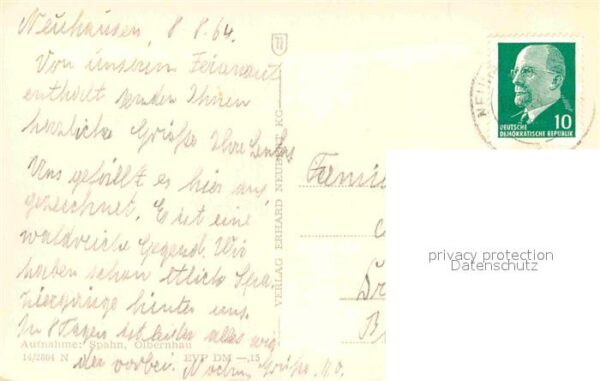 Neuhausen 8 8.64.
Von unserem Ferienauf
enthalt senden Ihnen
herzliche Grüße Ihre
Uns gefällt es hier aus
gezeichnet. Es ist eine
waldreiche Gegend. Wir
haben schon etliche Spa
ziergänge hinter uns.
In 8 Tagen ist leider alles wie
der vorbei. Nochm. Grüße
Aufnahme: Spahn, Olbernhau
14/2804 N EVP DM —,15
VERLAG ERHARD NEUBERT KG
Famili
NEUH
10
DEUTSCHE
DEMOKRATISCHE REPUBLIK
privacy protection
Datenschutz